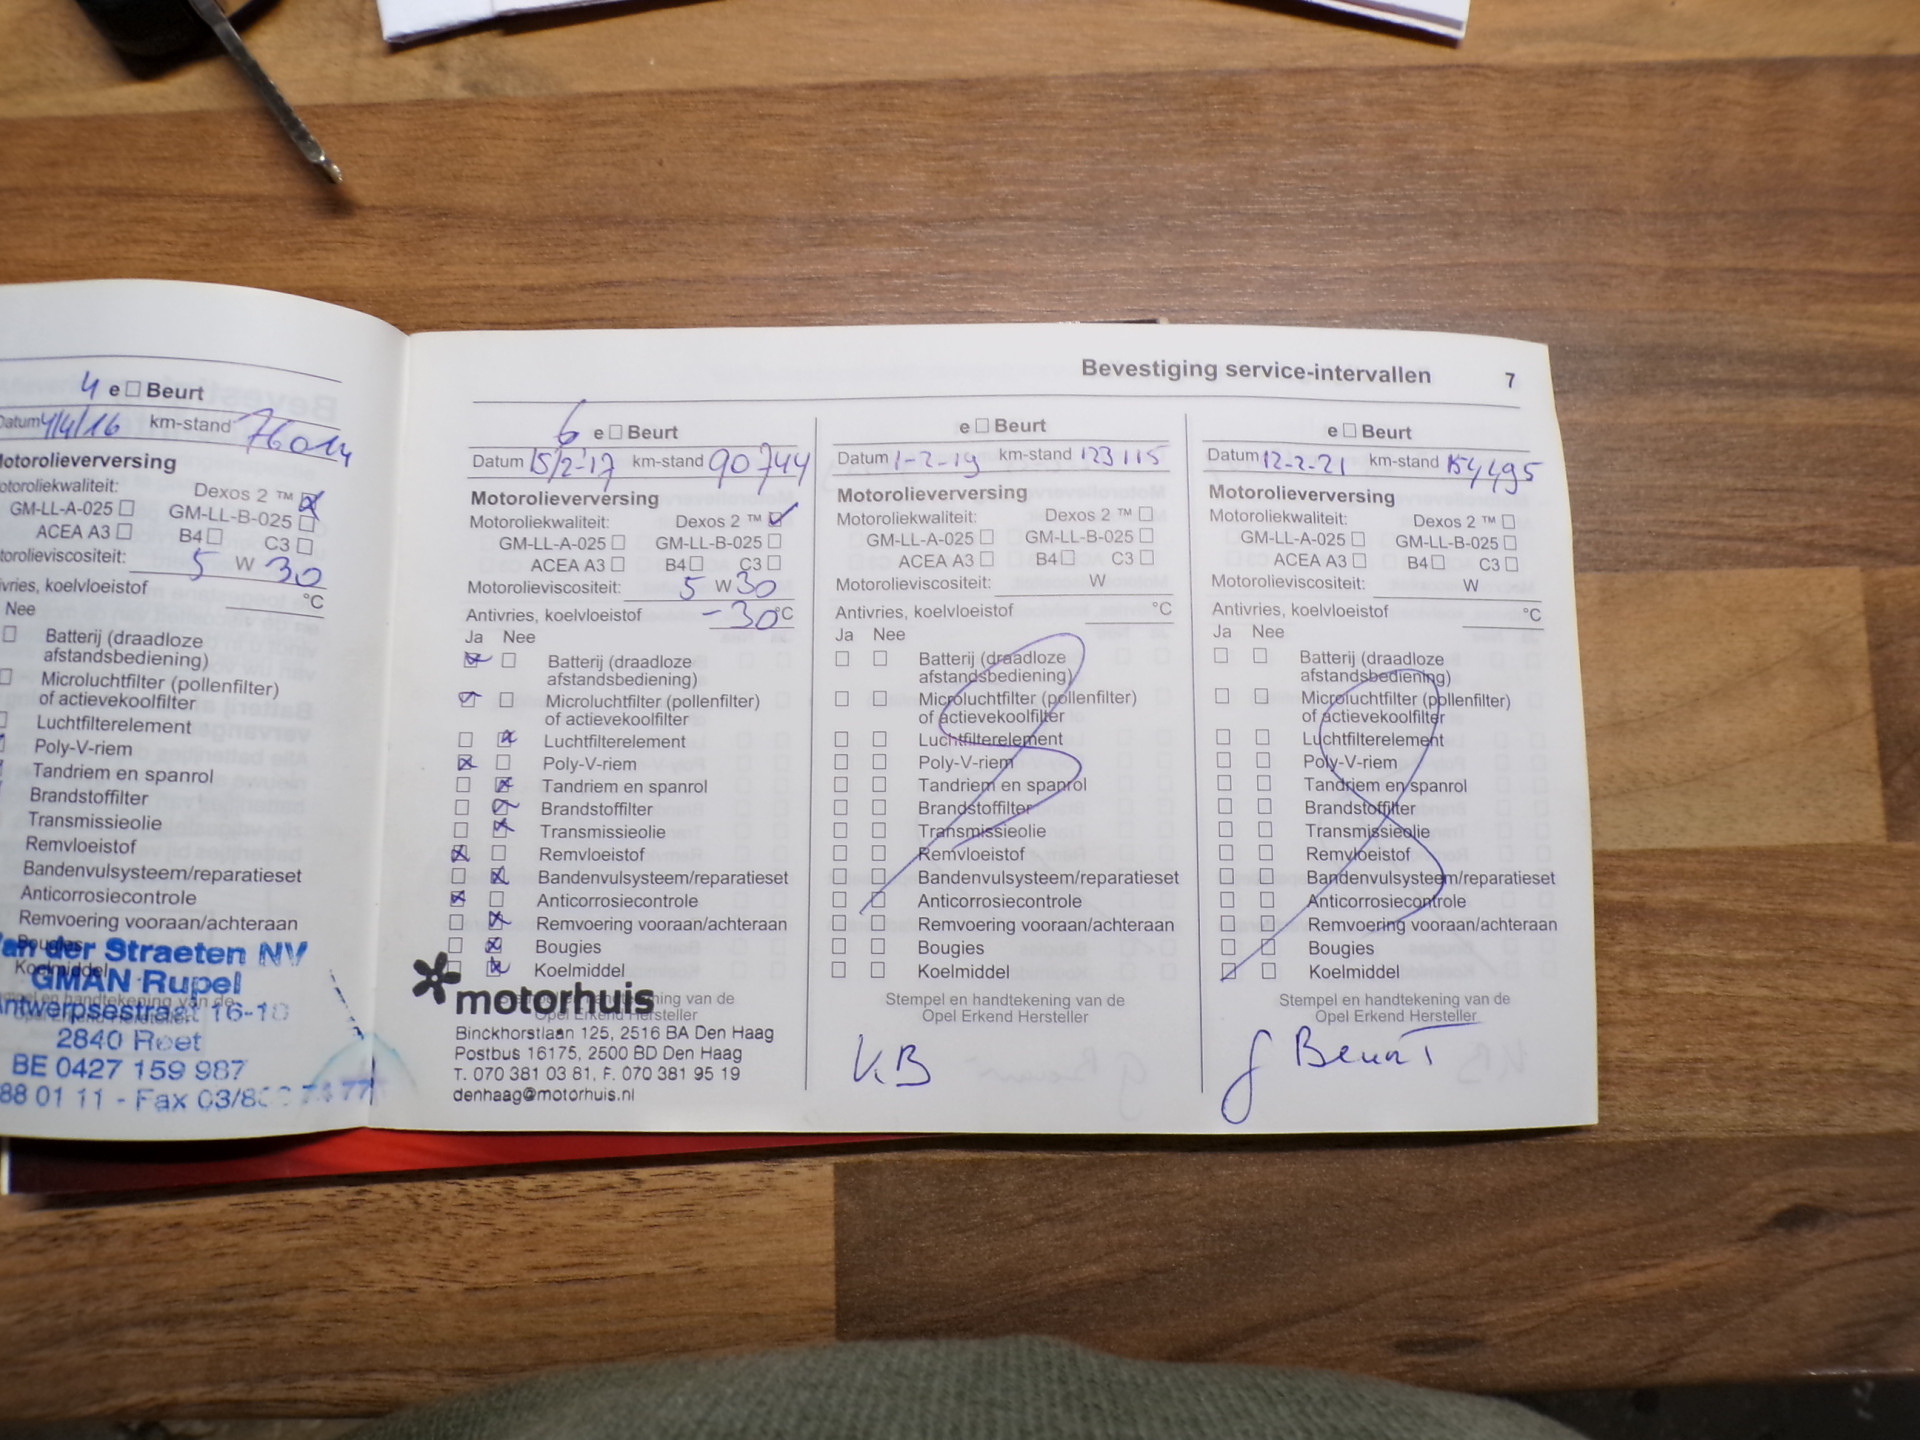 4 e Beurt
Datum 4/4/16 km-stand 76014
Motorolieverversing
Motoroliekwaliteit: Dexos 2 ™
GM-LL-A-025 GM-LL-B-025
ACEA A3 B4 C3
Motorolieviscositeit: 5 W 30
Antivries, koelvloeistof °C
Nee
Batterij (draadloze
afstandsbediening)
Microluchtfilter (pollenfilter)
of actievekoolfilter
Luchtfilterelement
Poly-V-riem
Tandriem en spanrol
Brandstoffilter
Transmissieolie
Remvloeistof
Bandenvulsysteem/reparatieset
Anticorrosiecontrole
Remvoering vooraan/achteraan
Bougies
Koelmiddel
Van der Straeten NV
GMAN Rupel
Antwerpsestraat 16-18
2840 Reet
BE 0427 159 987
88 01 11 - Fax 03/88
Bevestiging service-intervallen 7
6 e Beurt
Datum 15/2-'17 km-stand 90744
Motorolieverversing
Motoroliekwaliteit: Dexos 2 ™
GM-LL-A-025 GM-LL-B-025
ACEA A3 B4 C3
Motorolieviscositeit: 5 W 30
Antivries, koelvloeistof -30°C
Ja Nee
Batterij (draadloze
afstandsbediening)
Microluchtfilter (pollenfilter)
of actievekoolfilter
Luchtfilterelement
Poly-V-riem
Tandriem en spanrol
Brandstoffilter
Transmissieolie
Remvloeistof
Bandenvulsysteem/reparatieset
Anticorrosiecontrole
Remvoering vooraan/achteraan
Bougies
Koelmiddel
Stempel en handtekening van de
Opel Erkend Hersteller
motorhuis
Binckhorstlaan 125, 2516 BA Den Haag
Postbus 16175, 2500 BD Den Haag
T. 070 381 03 81, F. 070 381 95 19
denhaag@motorhuis.nl
e Beurt
Datum 1-2-19 km-stand 123115
Motorolieverversing
Motoroliekwaliteit: Dexos 2 ™
GM-LL-A-025 GM-LL-B-025
ACEA A3 B4 C3
Motorolieviscositeit: W
Antivries, koelvloeistof °C
Ja Nee
Batterij (draadloze
afstandsbediening)
Microluchtfilter (pollenfilter)
of actievekoolfilter
Luchtfilterelement
Poly-V-riem
Tandriem en spanrol
Brandstoffilter
Transmissieolie
Remvloeistof
Bandenvulsysteem/reparatieset
Anticorrosiecontrole
Remvoering vooraan/achteraan
Bougies
Koelmiddel
Stempel en handtekening van de
Opel Erkend Hersteller
K.B
e Beurt
Datum 12-2-21 km-stand 154495
Motorolieverversing
Motoroliekwaliteit: Dexos 2 ™
GM-LL-A-025 GM-LL-B-025
ACEA A3 B4 C3
Motorolieviscositeit: W
Antivries, koelvloeistof °C
Ja Nee
Batterij (draadloze
afstandsbediening)
Microluchtfilter (pollenfilter)
of actievekoolfilter
Luchtfilterelement
Poly-V-riem
Tandriem en spanrol
Brandstoffilter
Transmissieolie
Remvloeistof
Bandenvulsysteem/reparatieset
Anticorrosiecontrole
Remvoering vooraan/achteraan
Bougies
Koelmiddel
Stempel en handtekening van de
Opel Erkend Hersteller
g Beurt